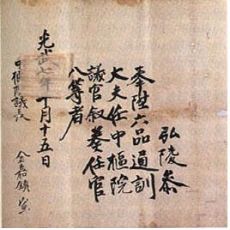 弘陵參
奉陞六品通訓
大夫任中樞院
議官叙奏任官
八等者
光武七年月十五日
中樞院議長 金嘉鎭宣